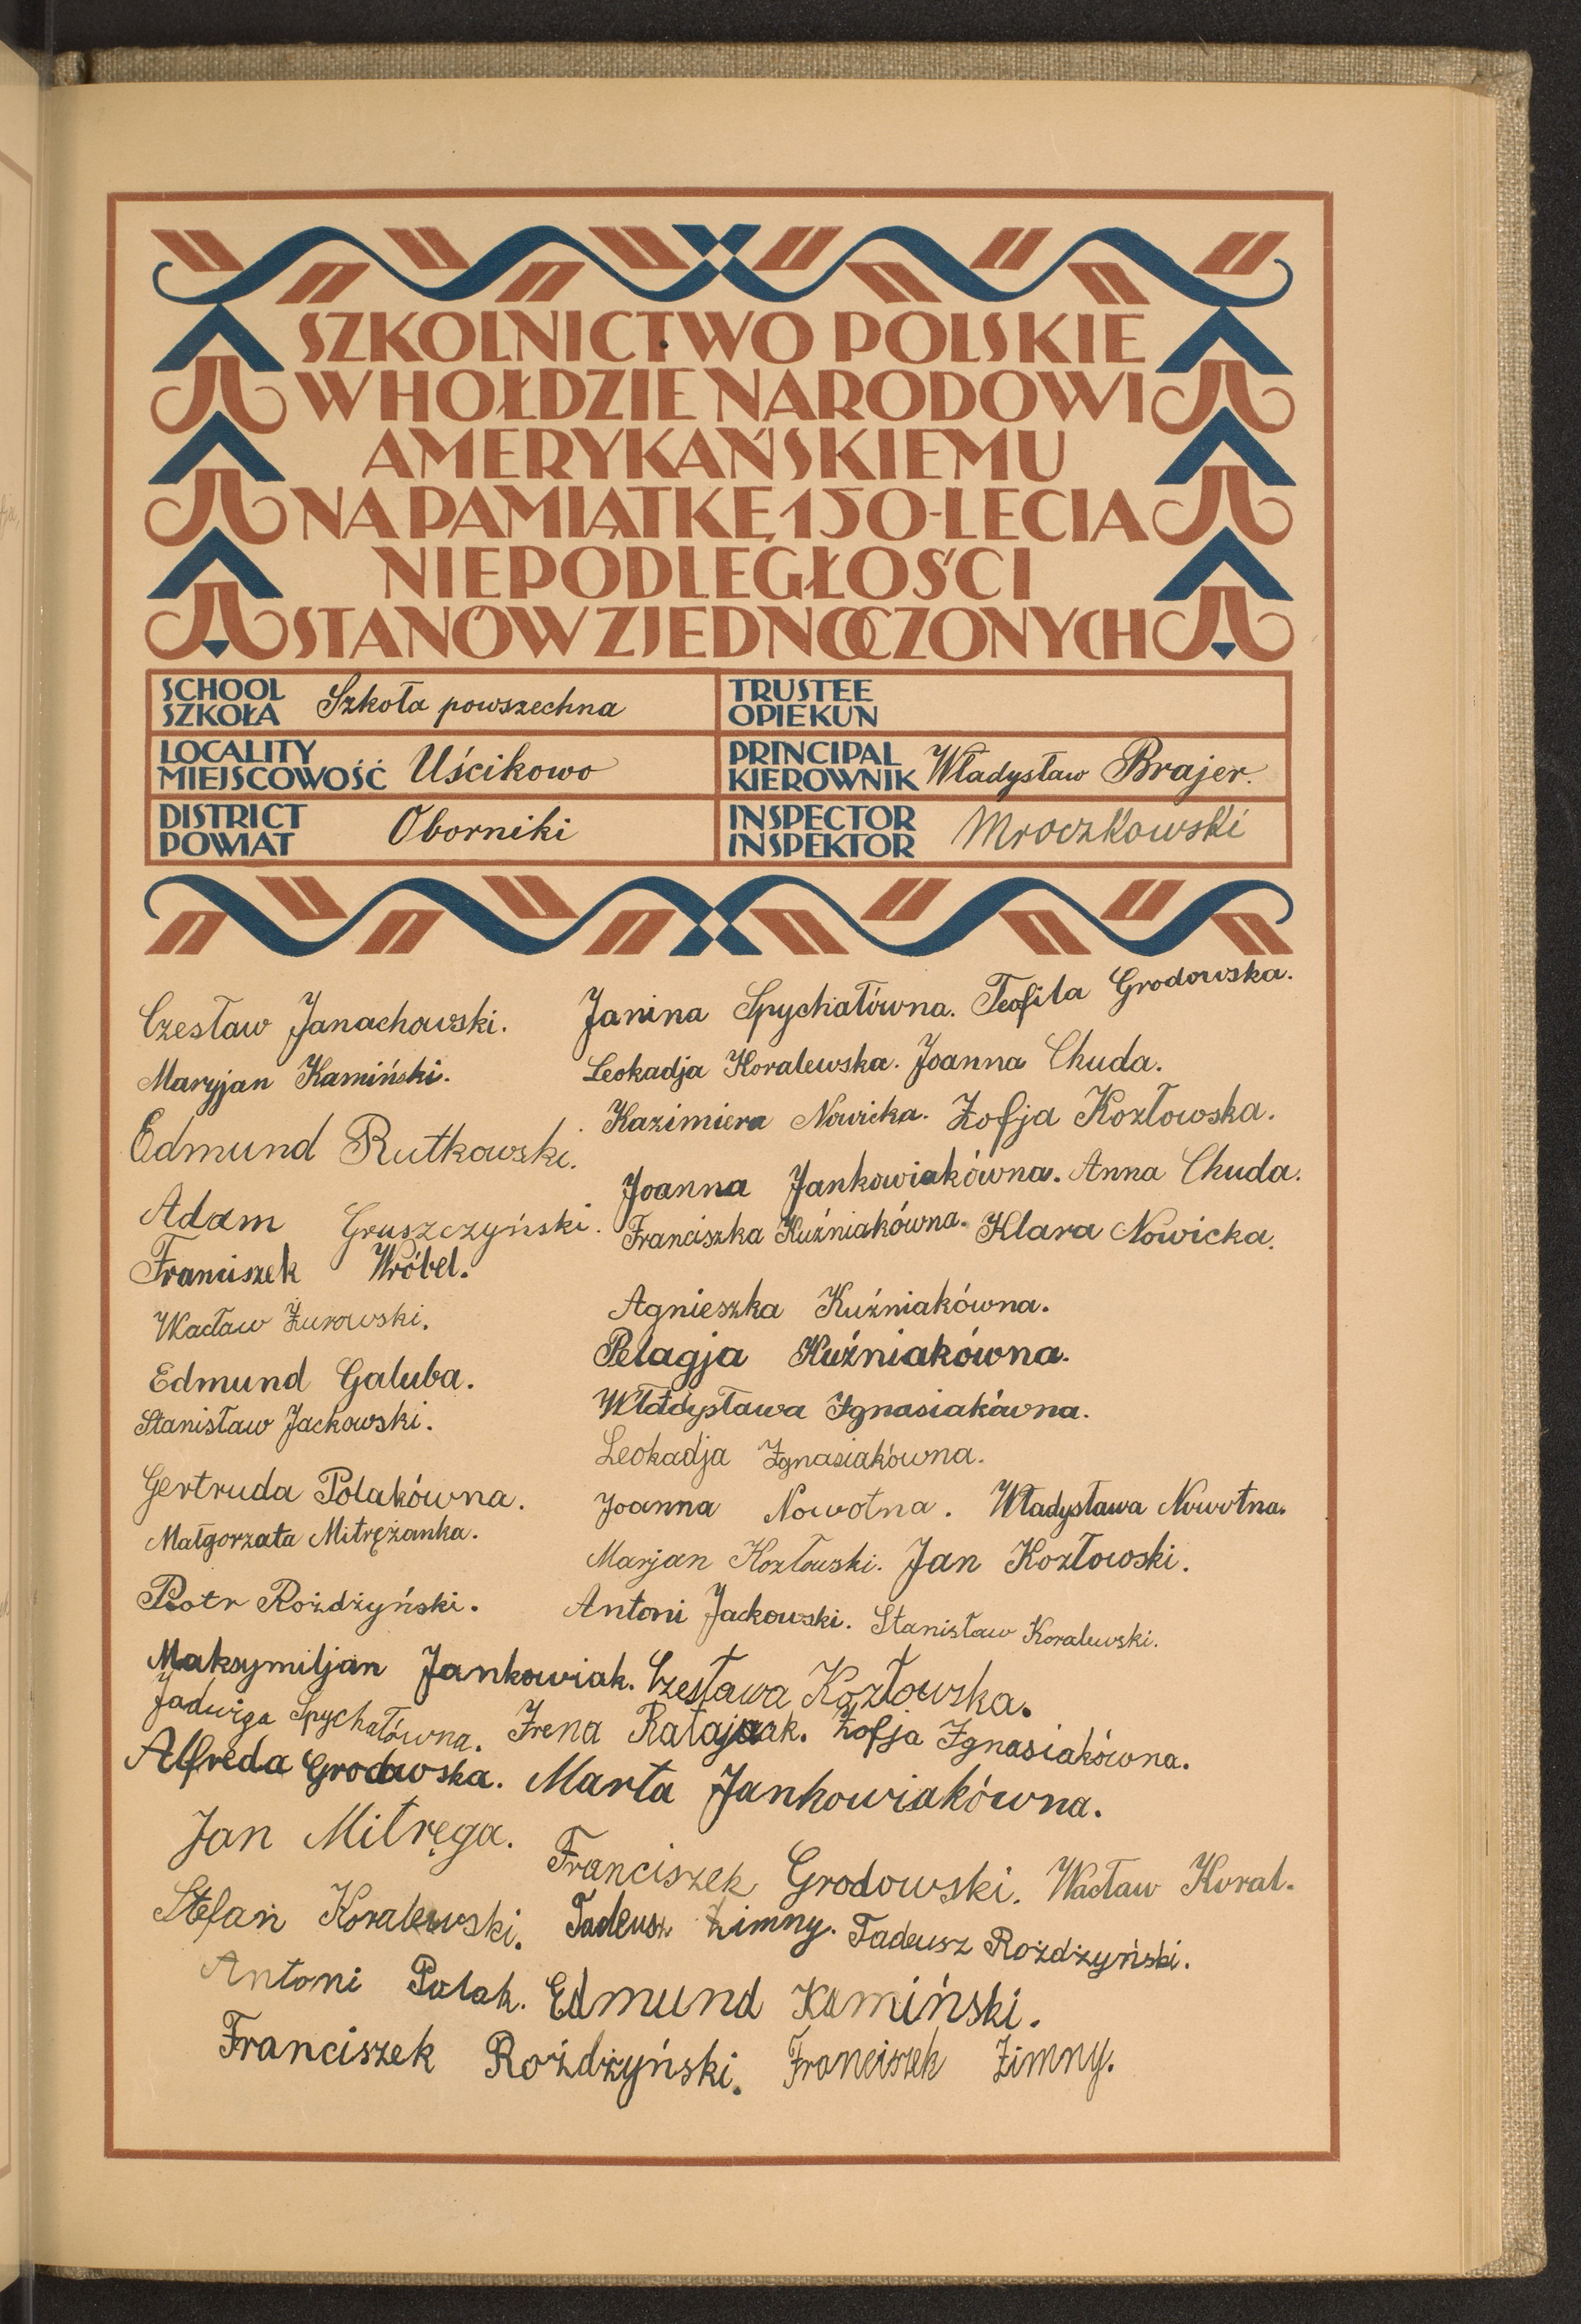 SZKOLNICTWO POLSKIE
W HOŁDZIE NARODOWI
AMERYKAŃSKIEMU
NA PAMIĄTKĘ 150-LECIA
NIEPODLEGŁOŚCI
STANÓW ZJEDNOCZONYCH
SCHOOL
SZKOŁA
Szkoła powszechna
TRUSTEE
OPIEKUN
LOCALITY
MIEJSCOWOŚĆ
Uścikowo
PRINCIPAL
KIEROWNIK
Władysław Brajer.
DISTRICT
POWIAT
Oborniki
INSPECTOR
INSPEKTOR
Mroczkowski
Czesław Janachowski.
Maryjan Kamiński.
Edmund Rutkowski.
Adam Gruszczyński.
Franciszek Wróbel.
Wacław Żurowski.
Edmund Galuba.
Stanisław Jackowski.
Gertruda Polakówna.
Małgorzata Mitrężanka.
Piotr Rożdżyński.
Janina Spychałówna. Teofila Grodowska.
Leokadja Koralewska. Joanna Chuda.
Kazimiera Nowicka. Zofja Kozłowska.
Joanna Jankowiakówna. Anna Chuda.
Franciszka Kuźniakówna. Klara Nowicka.
Agnieszka Kuźniakówna.
Pelagja Kuźniakówna.
Władysława Ignasiakówna.
Leokadja Ignasiakówna.
Joanna Nowotna. Władysława Nowotna.
Marjan Kozłowski. Jan Kozłowski.
Antoni Jackowski. Stanisław Koralewski.
Maksymiljan Jankowiak. Czesława Kozłowska.
Jadwiga Spychałówna. Irena Ratajczak. Zofja Ignasiakówna.
Alfreda Grodowska. Marta Jankowiakówna.
Jan Mitręga. Franciszek Grodowski. Wacław Koral.
Stefan Koralewski. Tadeusz Zimny. Tadeusz Rożdżyński.
Antoni Polak. Edmund Kamiński.
Franciszek Rożdżyński. Franciszek Zimny.